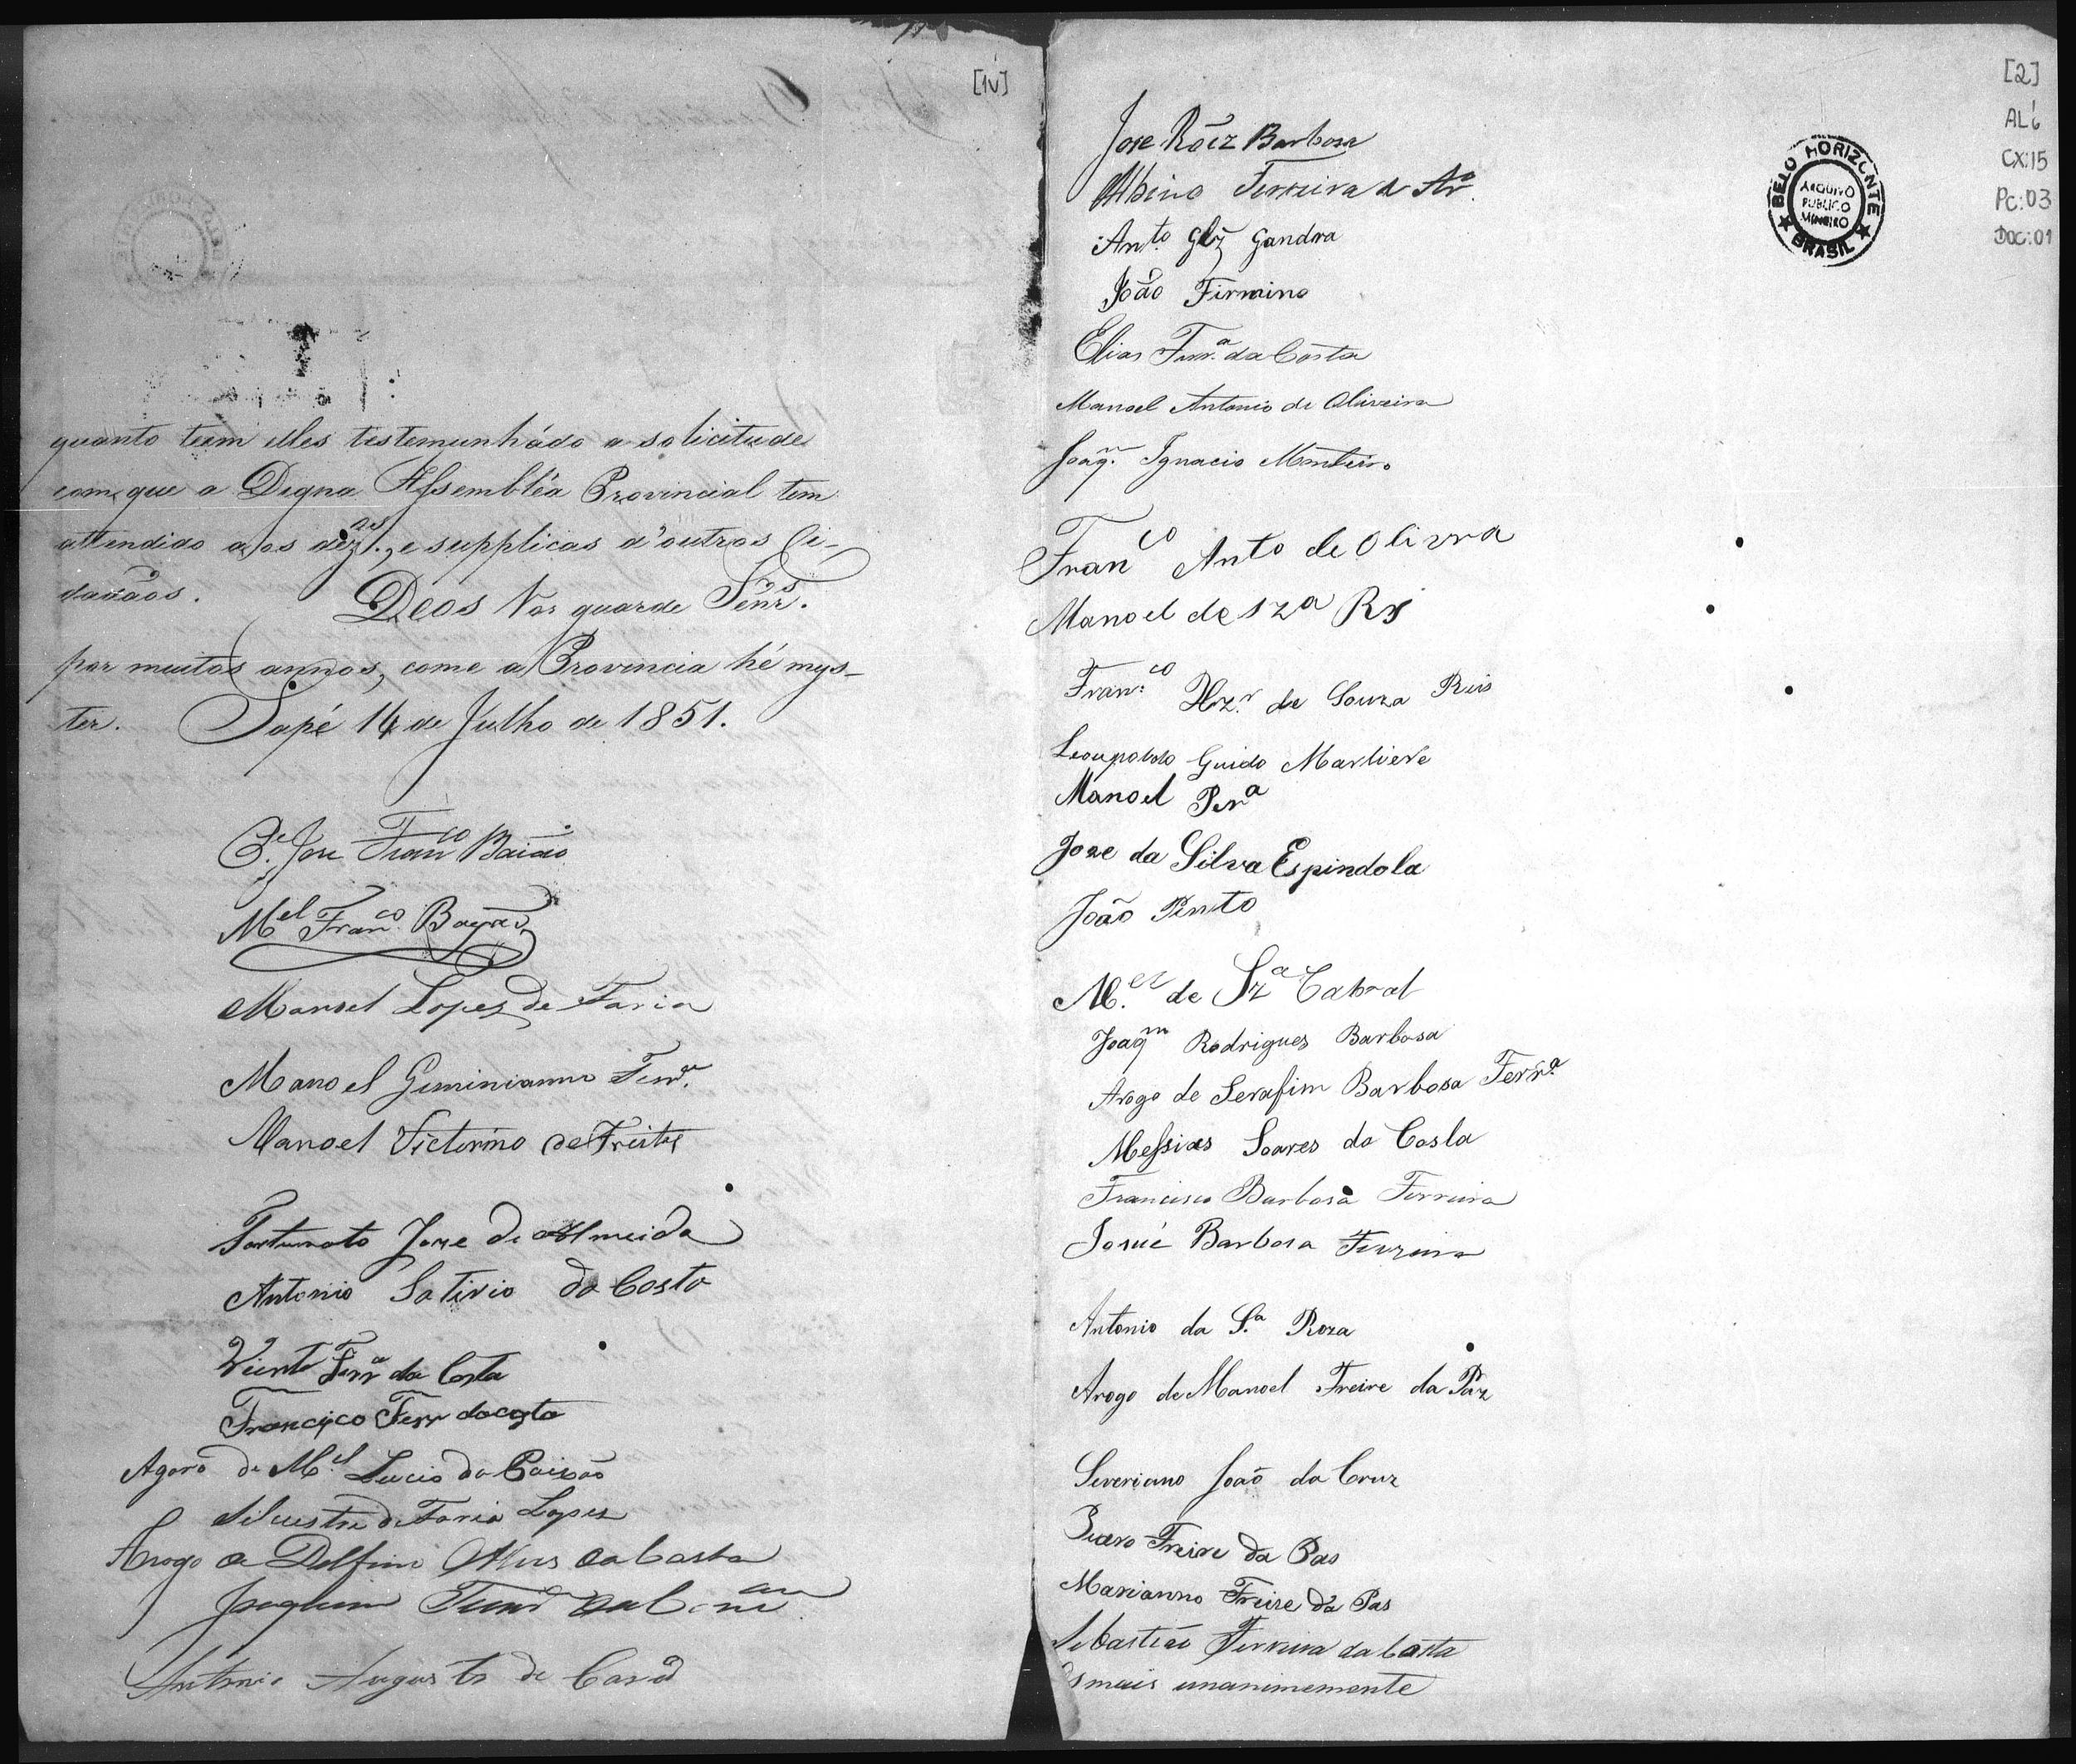 [1v]
quanto teem elles testemunhádo a solicitude
com que a Digna Assembléa Provincial tem
attendido a os dez.es, e supplicas d'outros Ci-
dadãos.
Deos Vos guarde Senr.es
por muitos annos, come a Provincia hé mys-
ter. Sapé 14 de Julho de 1851.
P.e Jose Franco Baião
Mel Franco. Bayão
Manoel Lopes de Faria
Manoel Geminianno Ferra.
Manoel Victorino de Freitas
Fortunato Joze de Almeida
Antonio Sativio da Costa
Vicente Ferra da Costa
Francisco Ferr dacosta
Agoro de M.el Lucio da Paixão
Silvestre de Faria Lopes
Arogo de Delfino Alves da Costa
Joaquim
Antonio Augusto de
[2]
AL6
CX:15
Pc:03
Doc:01
BELO HORIZONTE
ARQUIVO
PUBLICO
MINEIRO
BRASIL
Jose Róiz Barbosa
Albino Ferreira de Aro.
Anto. Glz Gandra
João Firmino
Elias Ferra. da Costa
Manoel Antonio de Oliveira
Joaqm. Ignacio Monteiro
Franco Anto de Olivra
Manoel de Sza Rs
Franco. de Souza Reis
Leoupoldo Guido Marliere
Manoel Pera
Joze da Silva Espindola
João Pinto
M.el de Sza Cabral
Joaqm Rodrigues Barbosa
Arogo de Serafim Barbosa Ferra.
Messias Soares da Costa
Francisco Barbosa Ferreira
Josué Barbosa Ferreira
Antonio da S.a Roza
Arogo de Manoel Freire da Paz
Severiano João da Cruz
Pedro Freire da Pas
Marianno Freire da Pas
Sebastião Ferreira da Costa
Os mais unanimemente